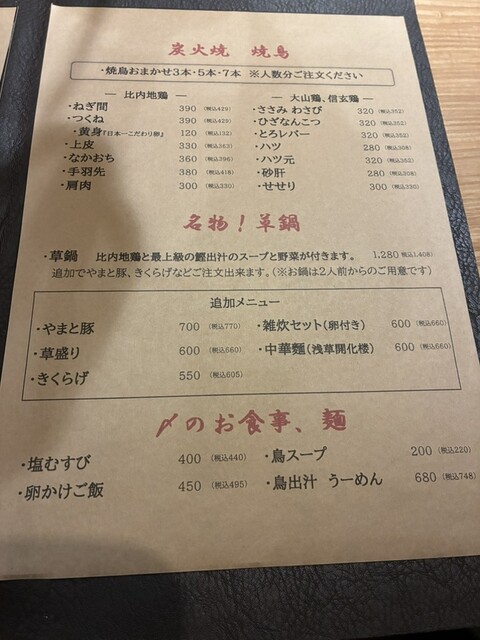 炭火焼　焼鳥
・焼鳥おまかせ3本・5本・7本　※人数分ご注文ください
― 比内地鶏 ―
・ねぎ間　390（税込429）
・つくね　390（税込429）
・黄身『日本一こだわり卵』　120（税込132）
・上皮　330（税込363）
・なかおち　360（税込396）
・手羽先　380（税込418）
・肩肉　300（税込330）
― 大山鶏、信玄鶏 ―
・ささみ わさび　320（税込352）
・ひざなんこつ　320（税込352）
・とろレバー　320（税込352）
・ハツ　280（税込308）
・ハツ元　320（税込352）
・砂肝　280（税込308）
・せせり　300（税込330）
名物！草鍋
・草鍋　比内地鶏と最上級の鰹出汁のスープと野菜が付きます。　1,280（税込1,408）
追加でやまと豚、きくらげなどご注文出来ます。（※お鍋は2人前からのご用意です）
追加メニュー
・やまと豚　700（税込770）
・草盛り　600（税込660）
・きくらげ　550（税込605）
・雑炊セット（卵付き）　600（税込660）
・中華麵（浅草開化楼）　600（税込660）
〆のお食事、麺
・塩むすび　400（税込440）
・卵かけご飯　450（税込495）
・鳥スープ　200（税込220）
・鳥出汁 うーめん　680（税込748）